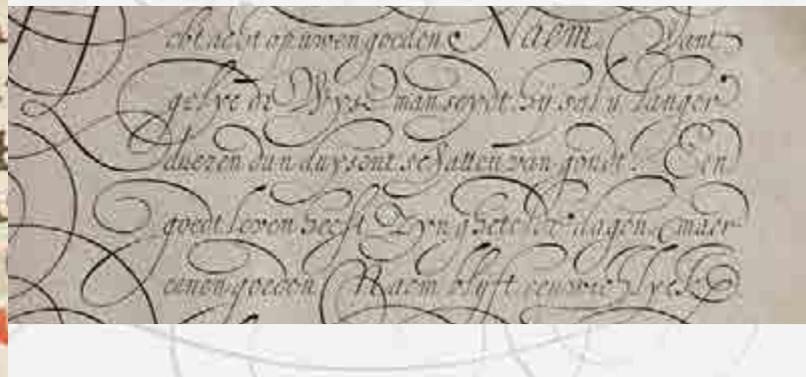 ebt acht op uwen goeden Naem. Want
gelyc de Wyse man seydt. hy sal u langer
dueren dan duysent schatten van goudt. Een
goedt leven heeft Zyn ghetelde dagen. maer
eenen goeden Naem blyft eeuwichlyck